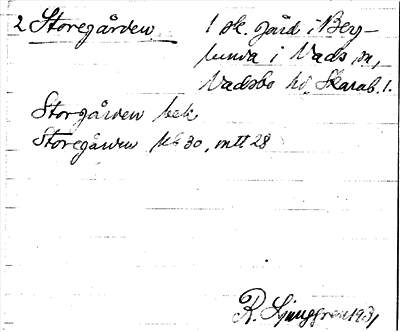 2 Storegården 1 sk. gård i Berg-
lunda i Vads sn,
Vadsbo hd, Skarab. l.
Storgården bek.
Storegården kk 30, mtt 28
R. Ljunggren 1931